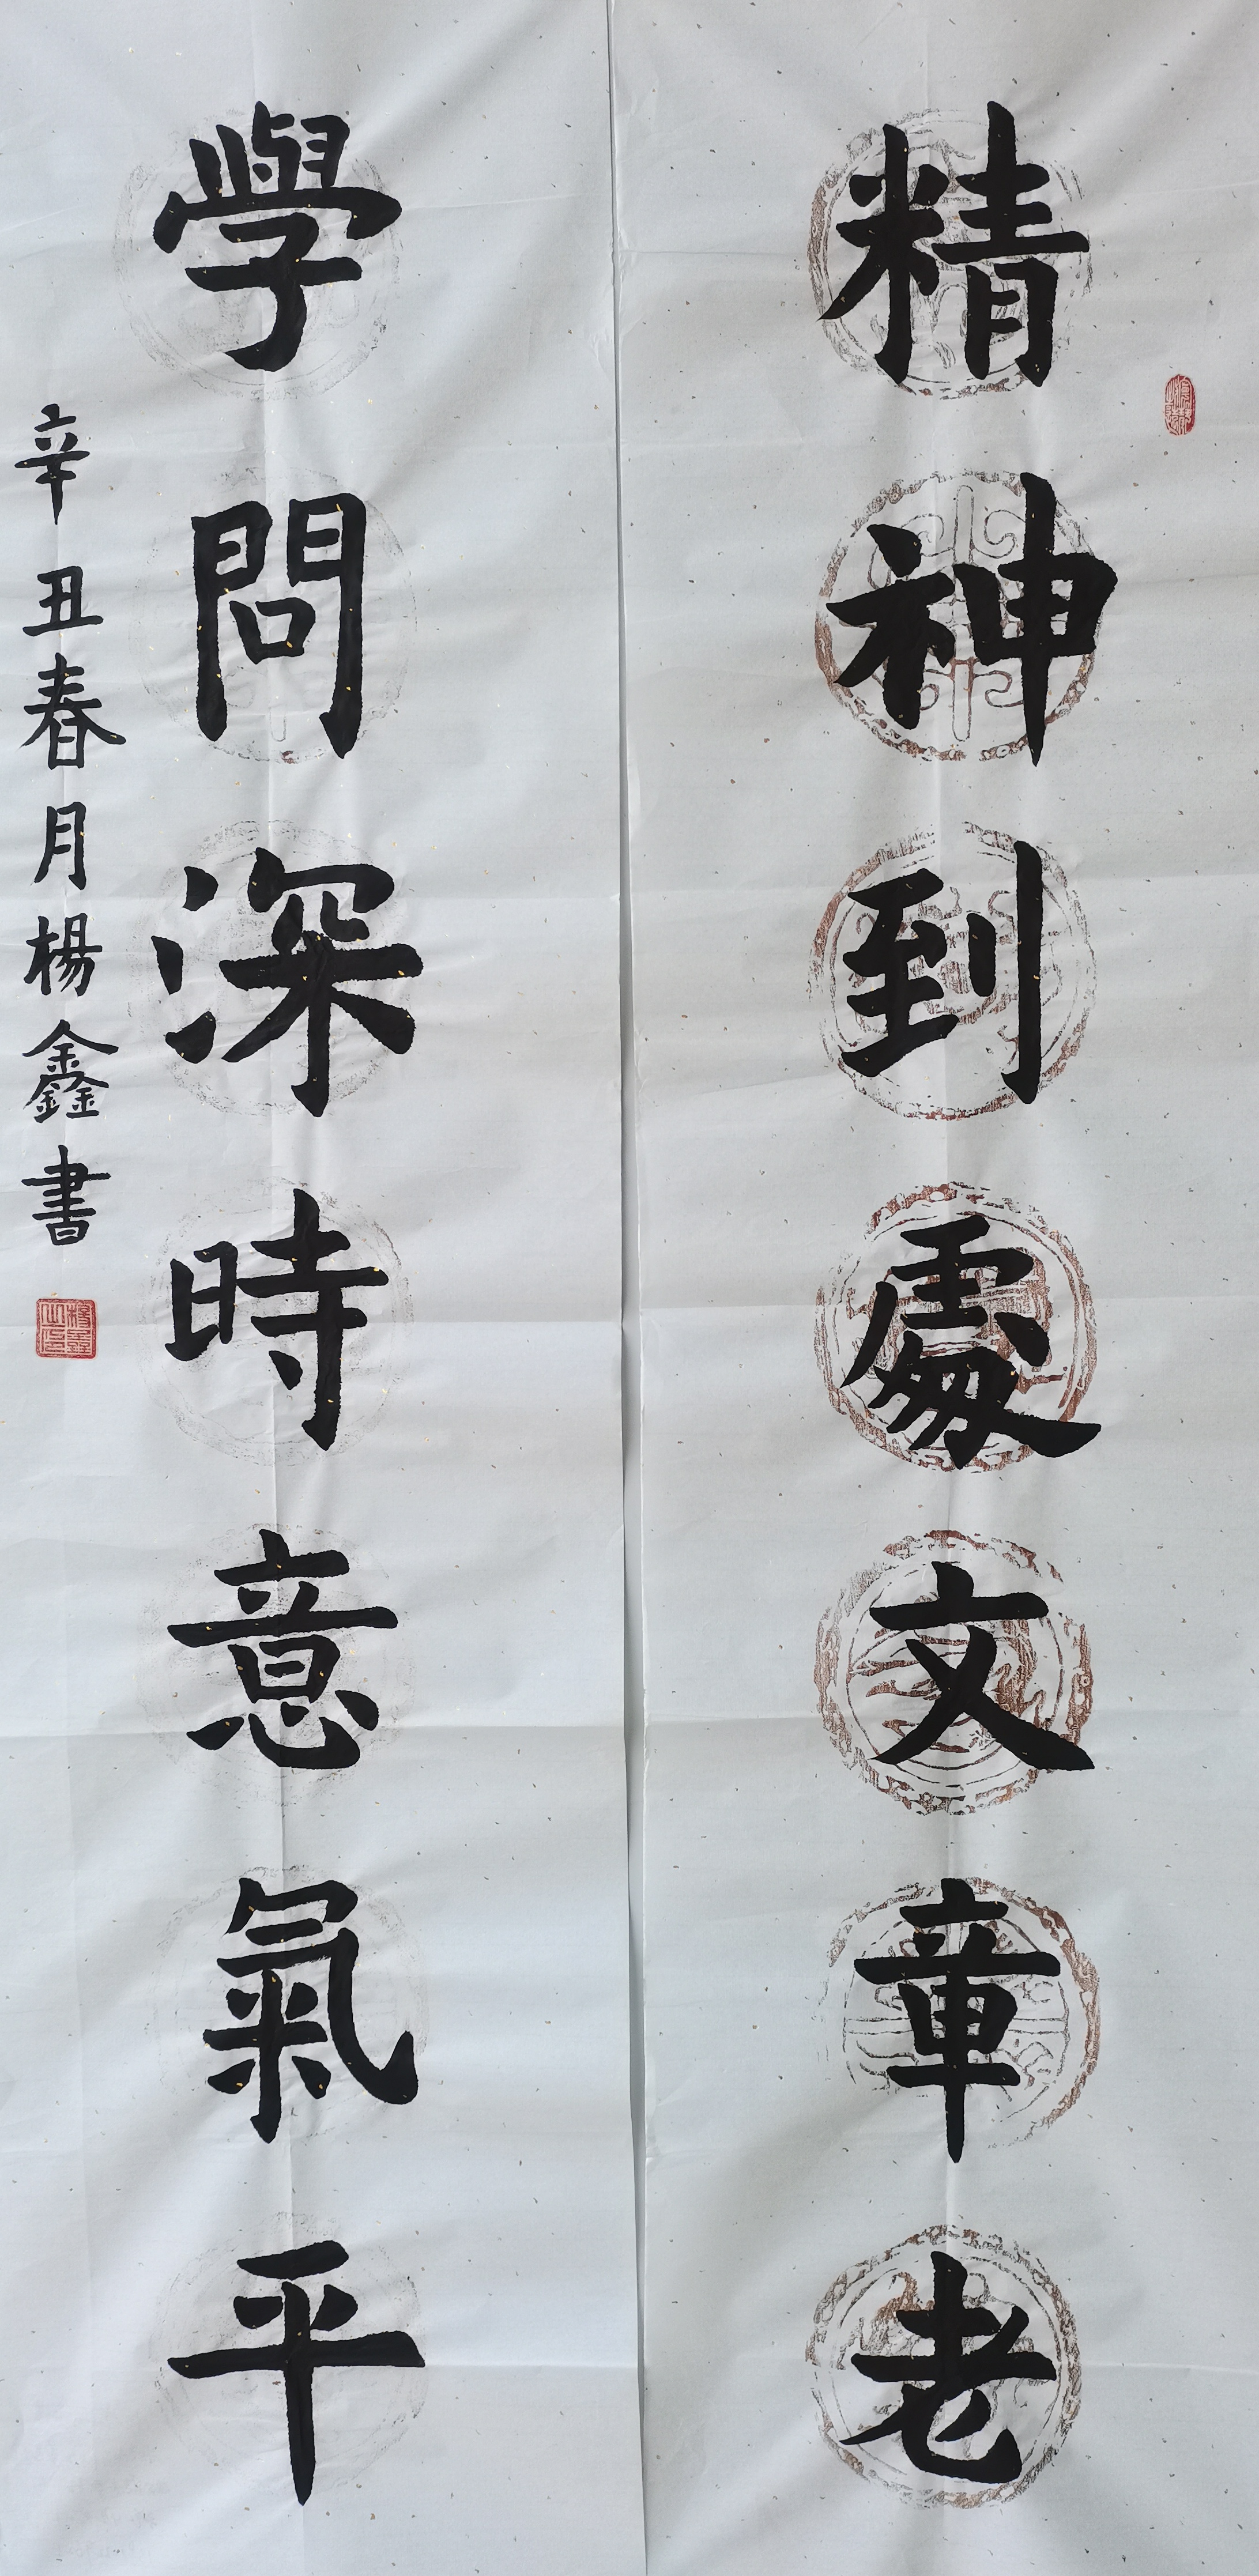 精神到處文章老
學問深時意氣平
辛丑春月楊鑫書